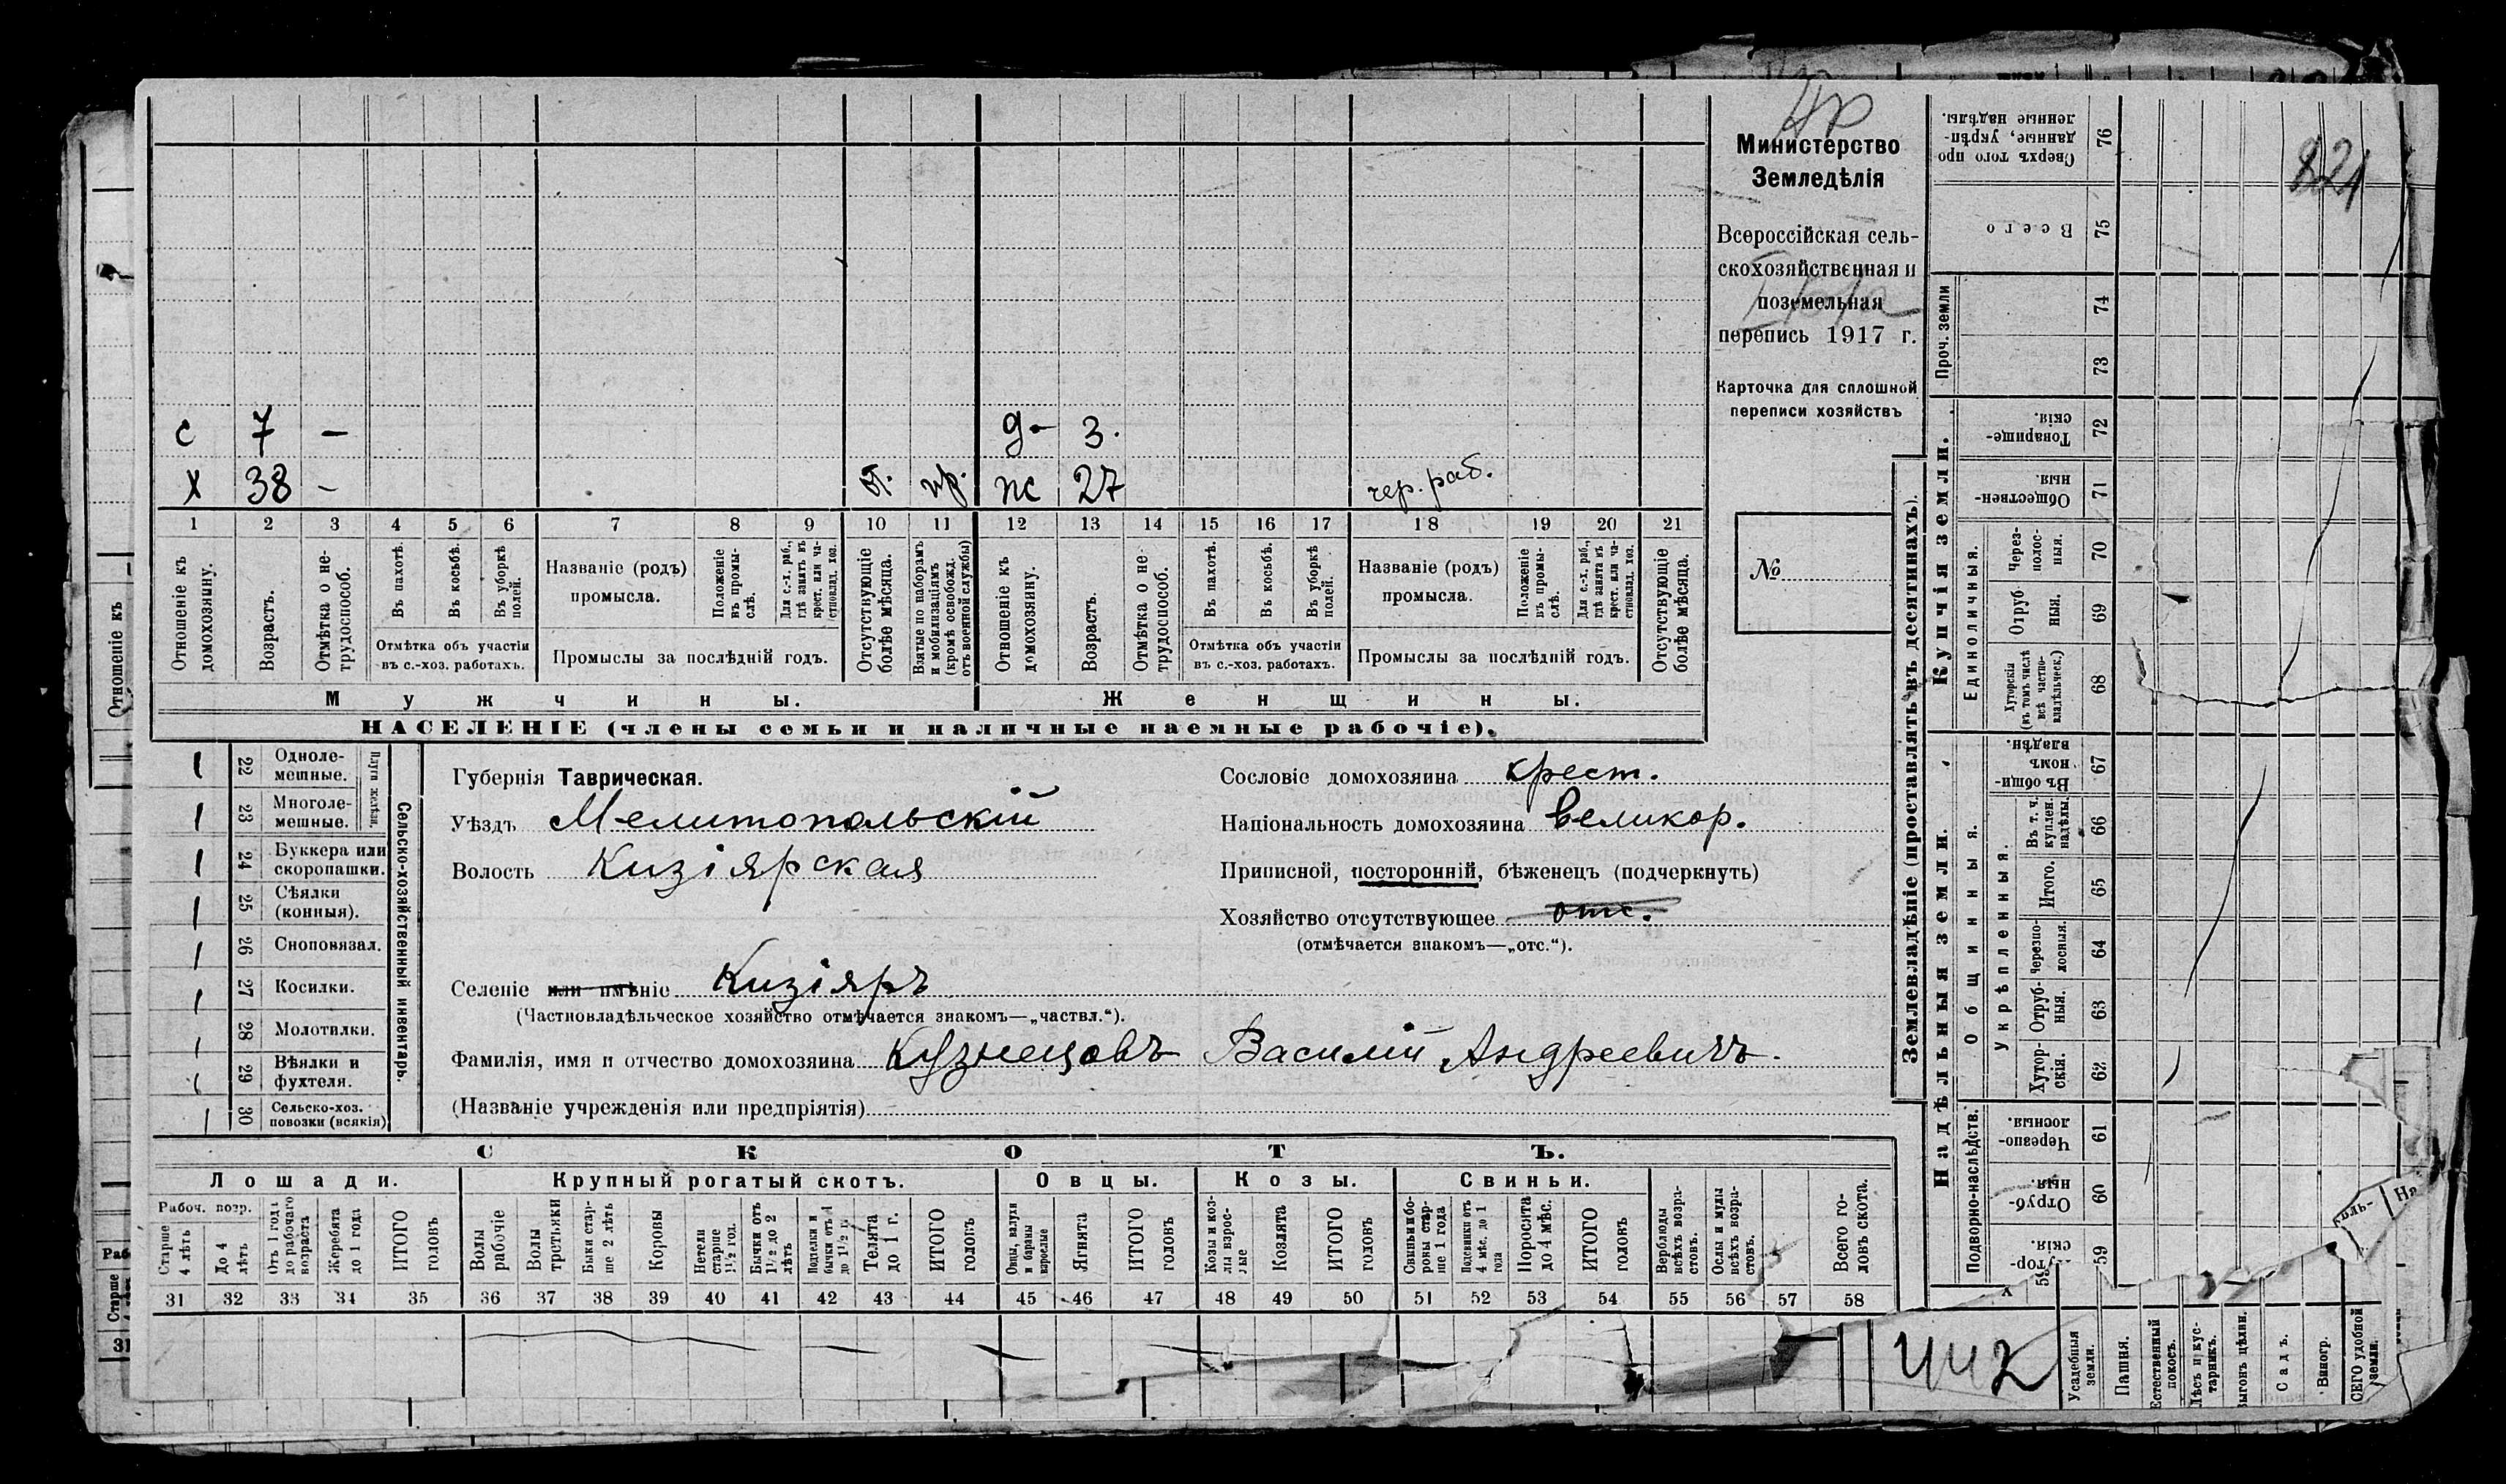 Министерство
Земледѣлія
Всероссійская сель-
скохозяйственная и
поземельная
перепись 1917 г.
Карточка для сплошной
переписи хозяйствъ
№
221
с 7 – д- 3.
х 38 – от. пр. ж 27 чер. раб.
1 2 3 4 5 6 7 8 9 10 11 12 13 14 15 16 17 18 19 20 21
Отношеніе къ домохозяину.
Возрастъ.
Отмѣтка о не-трудоспособ.
Въ пахотѣ.
Въ косьбѣ.
Въ уборкѣ полей.
Отмѣтка объ участіи
въ с.-хоз. работахъ.
Названіе (родъ)
промысла.
Положеніе въ промы-слѣ.
Для с.-х. раб., гдѣ занятъ въ крест. или ча-стновлад. хоз.
Промыслы за послѣдній годъ.
Отсутствующіе болѣе мѣсяца.
Взятые по наборамъ и мобилизаціямъ (кромѣ освобожд. отъ военной службы)
Отношеніе къ домохозяину.
Возрастъ.
Отмѣтка о не-трудоспособ.
Въ пахотѣ.
Въ косьбѣ.
Въ уборкѣ полей.
Отмѣтка объ участіи
въ с.-хоз. работахъ.
Названіе (родъ)
промысла.
Положеніе въ промы-слѣ.
Для с.-х. раб., гдѣ занята въ крест. или ча-стновлад. хоз.
Промыслы за послѣдній годъ.
Отсутствующіе болѣе мѣсяца.
Мужчины. Женщины.
НАСЕЛЕНІЕ (члены семьи и наличные наемные рабочіе).
22 Одноле-мешные.
23 Многоле-мешные.
Плуги желѣзн.
24 Буккера или скоропашки.
25 Сѣялки (конныя).
26 Сноповязал.
27 Косилки.
28 Молотилки.
29 Вѣялки и фухтеля.
30 Сельско-хоз. повозки (всякія)
Сельско-хозяйственный инвентарь.
Губернія Таврическая.
Уѣздъ Мелитопольскій
Волость Кизіярская
Селеніе или имѣніе Кизіяръ
(Частновладѣльческое хозяйство отмѣчается знакомъ—„частвл.“).
Фамилія, имя и отчество домохозяина Кузнецовъ Василій Андреевичъ.
(Названіе учрежденія или предпріятія)
Сословіе домохозяина крест.
Національность домохозяина великор.
Приписной, посторонній, бѣженецъ (подчеркнуть)
Хозяйство отсутствующее отс.
(отмѣчается знакомъ—„отс.“).
СКОТЪ.
Лошади. Крупный рогатый скотъ. Овцы. Козы. Свиньи.
Рабоч. возр.
Старше 4 лѣтъ
До 4 лѣтъ
Отъ 1 года до рабочаго возраста
Жеребята до 1 года
ИТОГО головъ
Волы рабочіе
Волы гуртовые
Быки стар-ше 2 лѣтъ
Коровы
Нетели старше 1½ год.
Бычки отъ 1½ до 2 лѣтъ
Телята до 1 г.
ИТОГО головъ
Овцы, валухи и бараны взрослые
Ягнята
ИТОГО головъ
Козы и коз-лы взрос-лые
Козлята
ИТОГО головъ
Свиньи и бо-ровы стар-ше 1 года
Подсвинки отъ 4 мѣс. до 1 года
Поросята до 4 мѣс.
ИТОГО головъ
Верблюды всѣхъ возра-стовъ.
Ослы и мулы всѣхъ возра-стовъ.
Всего го-ловъ скота.
31 32 33 34 35 36 37 38 39 40 41 42 43 44 45 46 47 48 49 50 51 52 53 54 55 56 57 58
442
Землевладѣніе (проставлять въ десятинахъ).
Сверхъ того про данные, укрѣп-ленные надѣлы. 76
Всего 75
Проч. земли
74
73
Купчія земли.
Товарище-скія. 72
Обществен-ныя. 71
Единоличныя.
Через-полос-ныя. 70
Отруб-ныя. 69
Хуторскія (въ томъ числѣ всѣ частно-владѣльческ.) 68
Надѣльныя земли.
Общинныя.
Въ общин-номъ владѣн. 67
Укрѣпленныя.
Въ т. ч. куплен. надѣлы. 66
Итого. 65
Черезпо-лосныя. 64
Отруб-ныя. 63
Хутор-скія. 62
Подворно-наслѣдств.
Черезпо-лосныя. 61
Отруб-ныя. 60
59
Усадебныя земли.
Пашня.
Естественный покосъ.
Лѣсъ и кус-тарникъ.
Выгонъ цѣлин.
Садъ.
Виногр.
Отношеніе къ
Старше
31